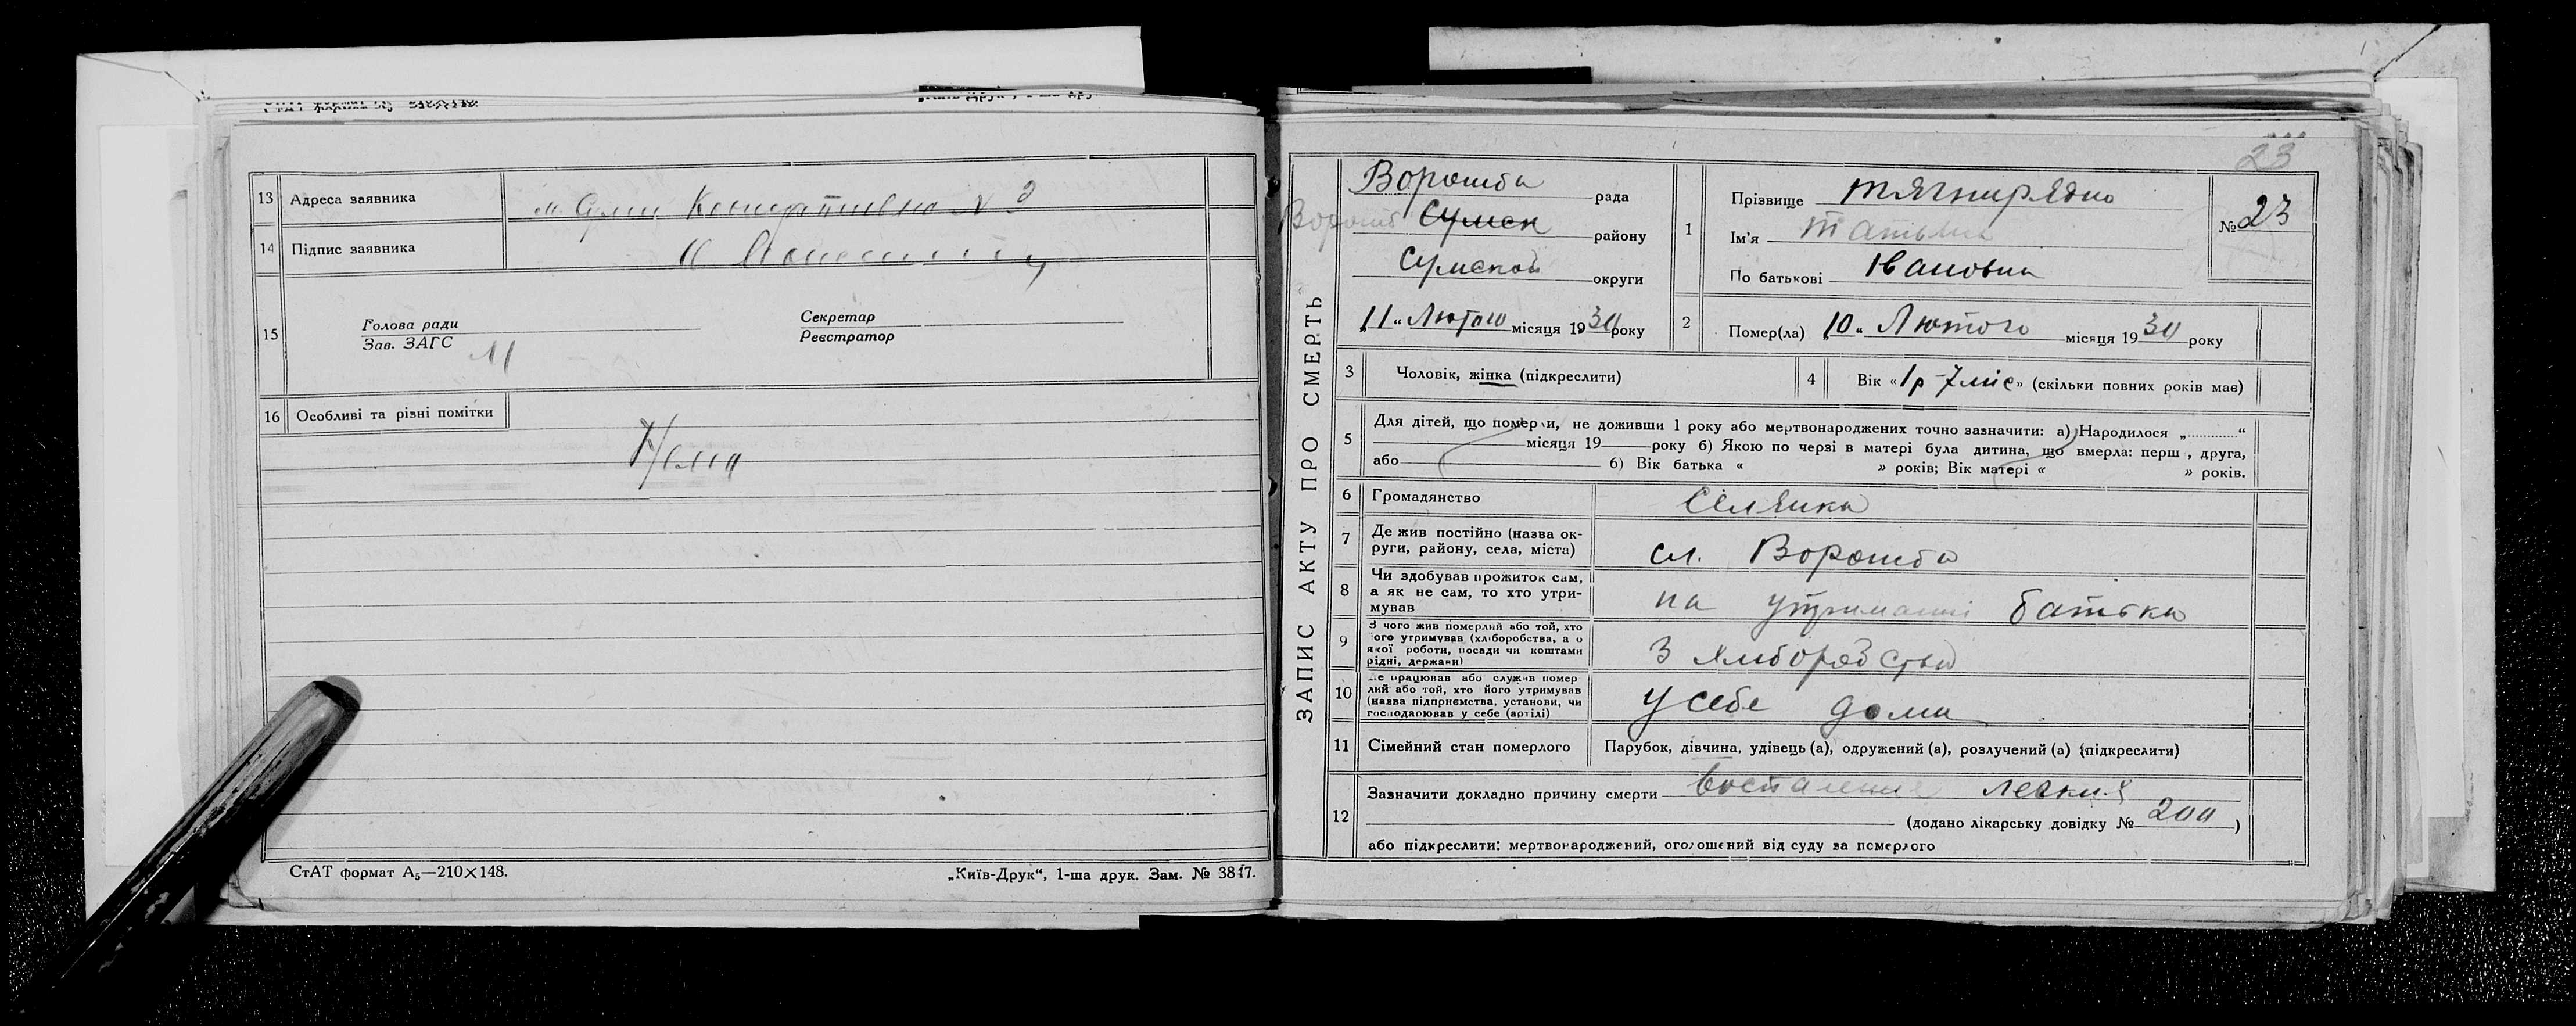 13 Адреса заявника м. Суми Кооперативна № 3
14 Підпис заявника
15 Голова ради
Зав. ЗАГС
Секретар
Реєстратор
16 Особливі та різні помітки
Нема
СтАТ формат А₅—210×148.
„Київ-Друк“, 1-ша друк. Зам. № 3817.
23
ЗАПИС АКТУ ПРО СМЕРТЬ
Ворожба рада
Сумск району
Сумской округи
„11“ Лютого місяця 1930 року
1 Прізвище Тягнирядно
Ім'я Татьяна
По батькові Івановна
№ 23
2 Помер(ла) „10“ Лютого місяця 1930 року
3 Чоловік, жінка (підкреслити)
4 Вік «1р-7міс» (скільки повних років має)
5 Для дітей, що померли, не доживши 1 року або мертвонароджених точно зазначити: а) Народилося „ “
місяця 19 року б) Якою по черзі в матері була дитина, що вмерла: перш , друга,
або б) Вік батька « » років; Вік матері « » років.
6 Громадянство Селянка
7 Де жив постійно (назва ок-
руги, району, села, міста) сл. Ворожба
8 Чи здобував прожиток сам,
а як не сам, то хто утри-
мував на утриманні батька
9 З чого жив померлий або той, хто
його утримував (хліборобства, а о
якої роботи, посади чи коштами
рідні, держави) З хліборобства
10 Де працював або служив помер
лий або той, хто його утримував
(назва підприємства, установи, чи
господарював у себе (артілі) у себе дома
11 Сімейний стан померлого Парубок, дівчина, удівець (а), одружений (а), розлучений (а) (підкреслити)
12 Зазначити докладно причину смерти воспаление легких
(додано лікарську довідку № 200)
або підкреслити: мертвонароджений, оголошений від суду за померлого